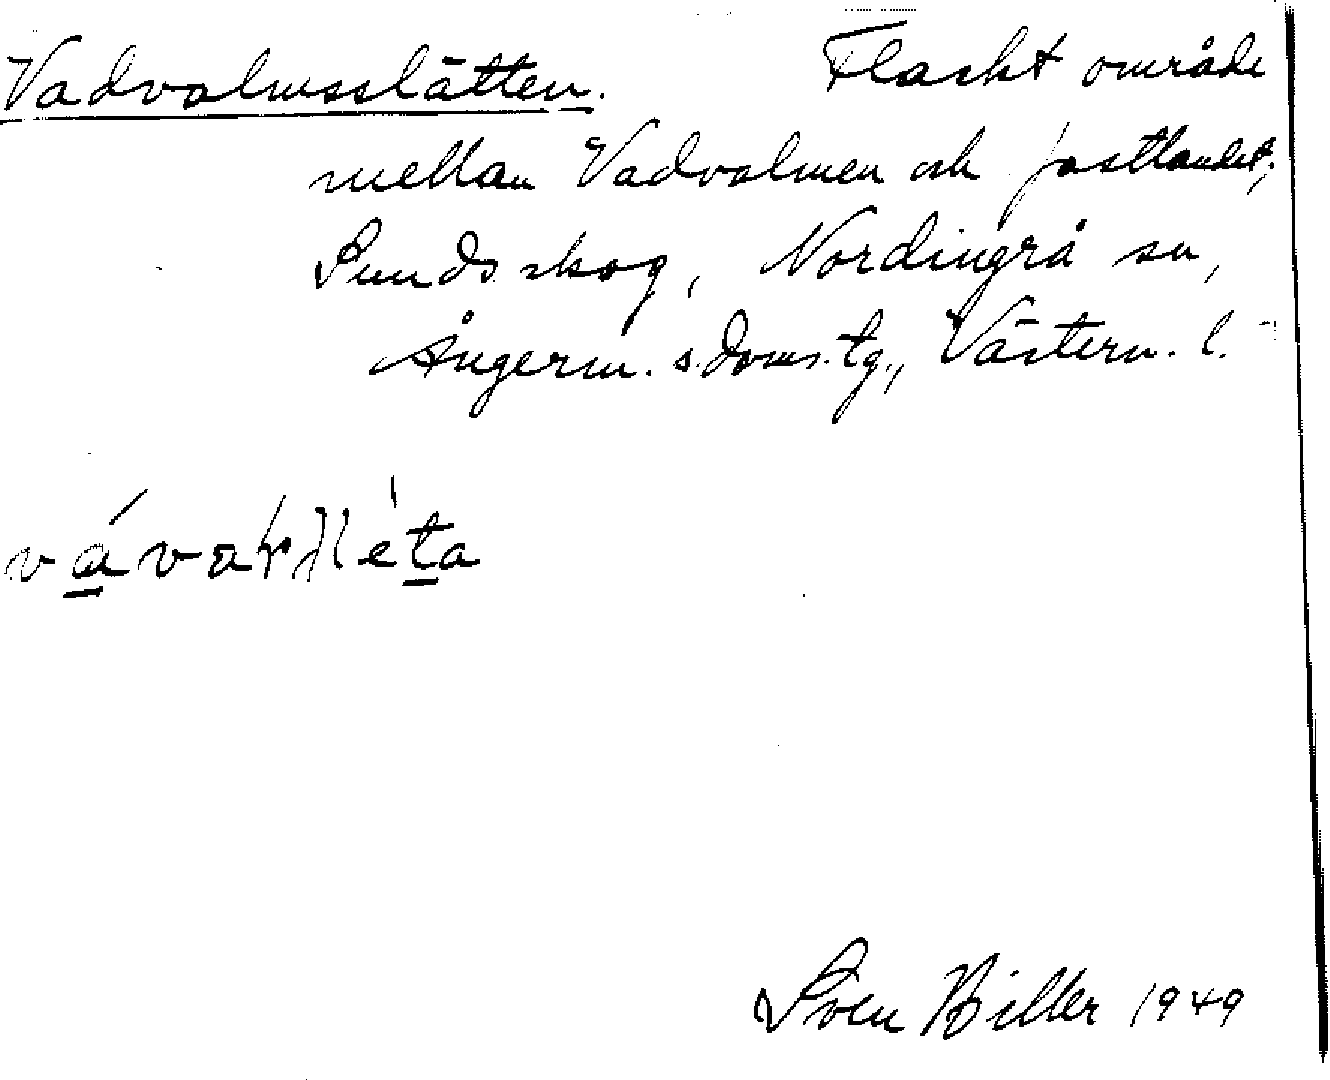 Vadvalmsslätten. Flackt område
mellan Vadvalmen och fastlandet;
Sundsskog, Nordingrå sn,
Ångerm. s. doms. tg., Västern. l.
Sven Hiller 1949